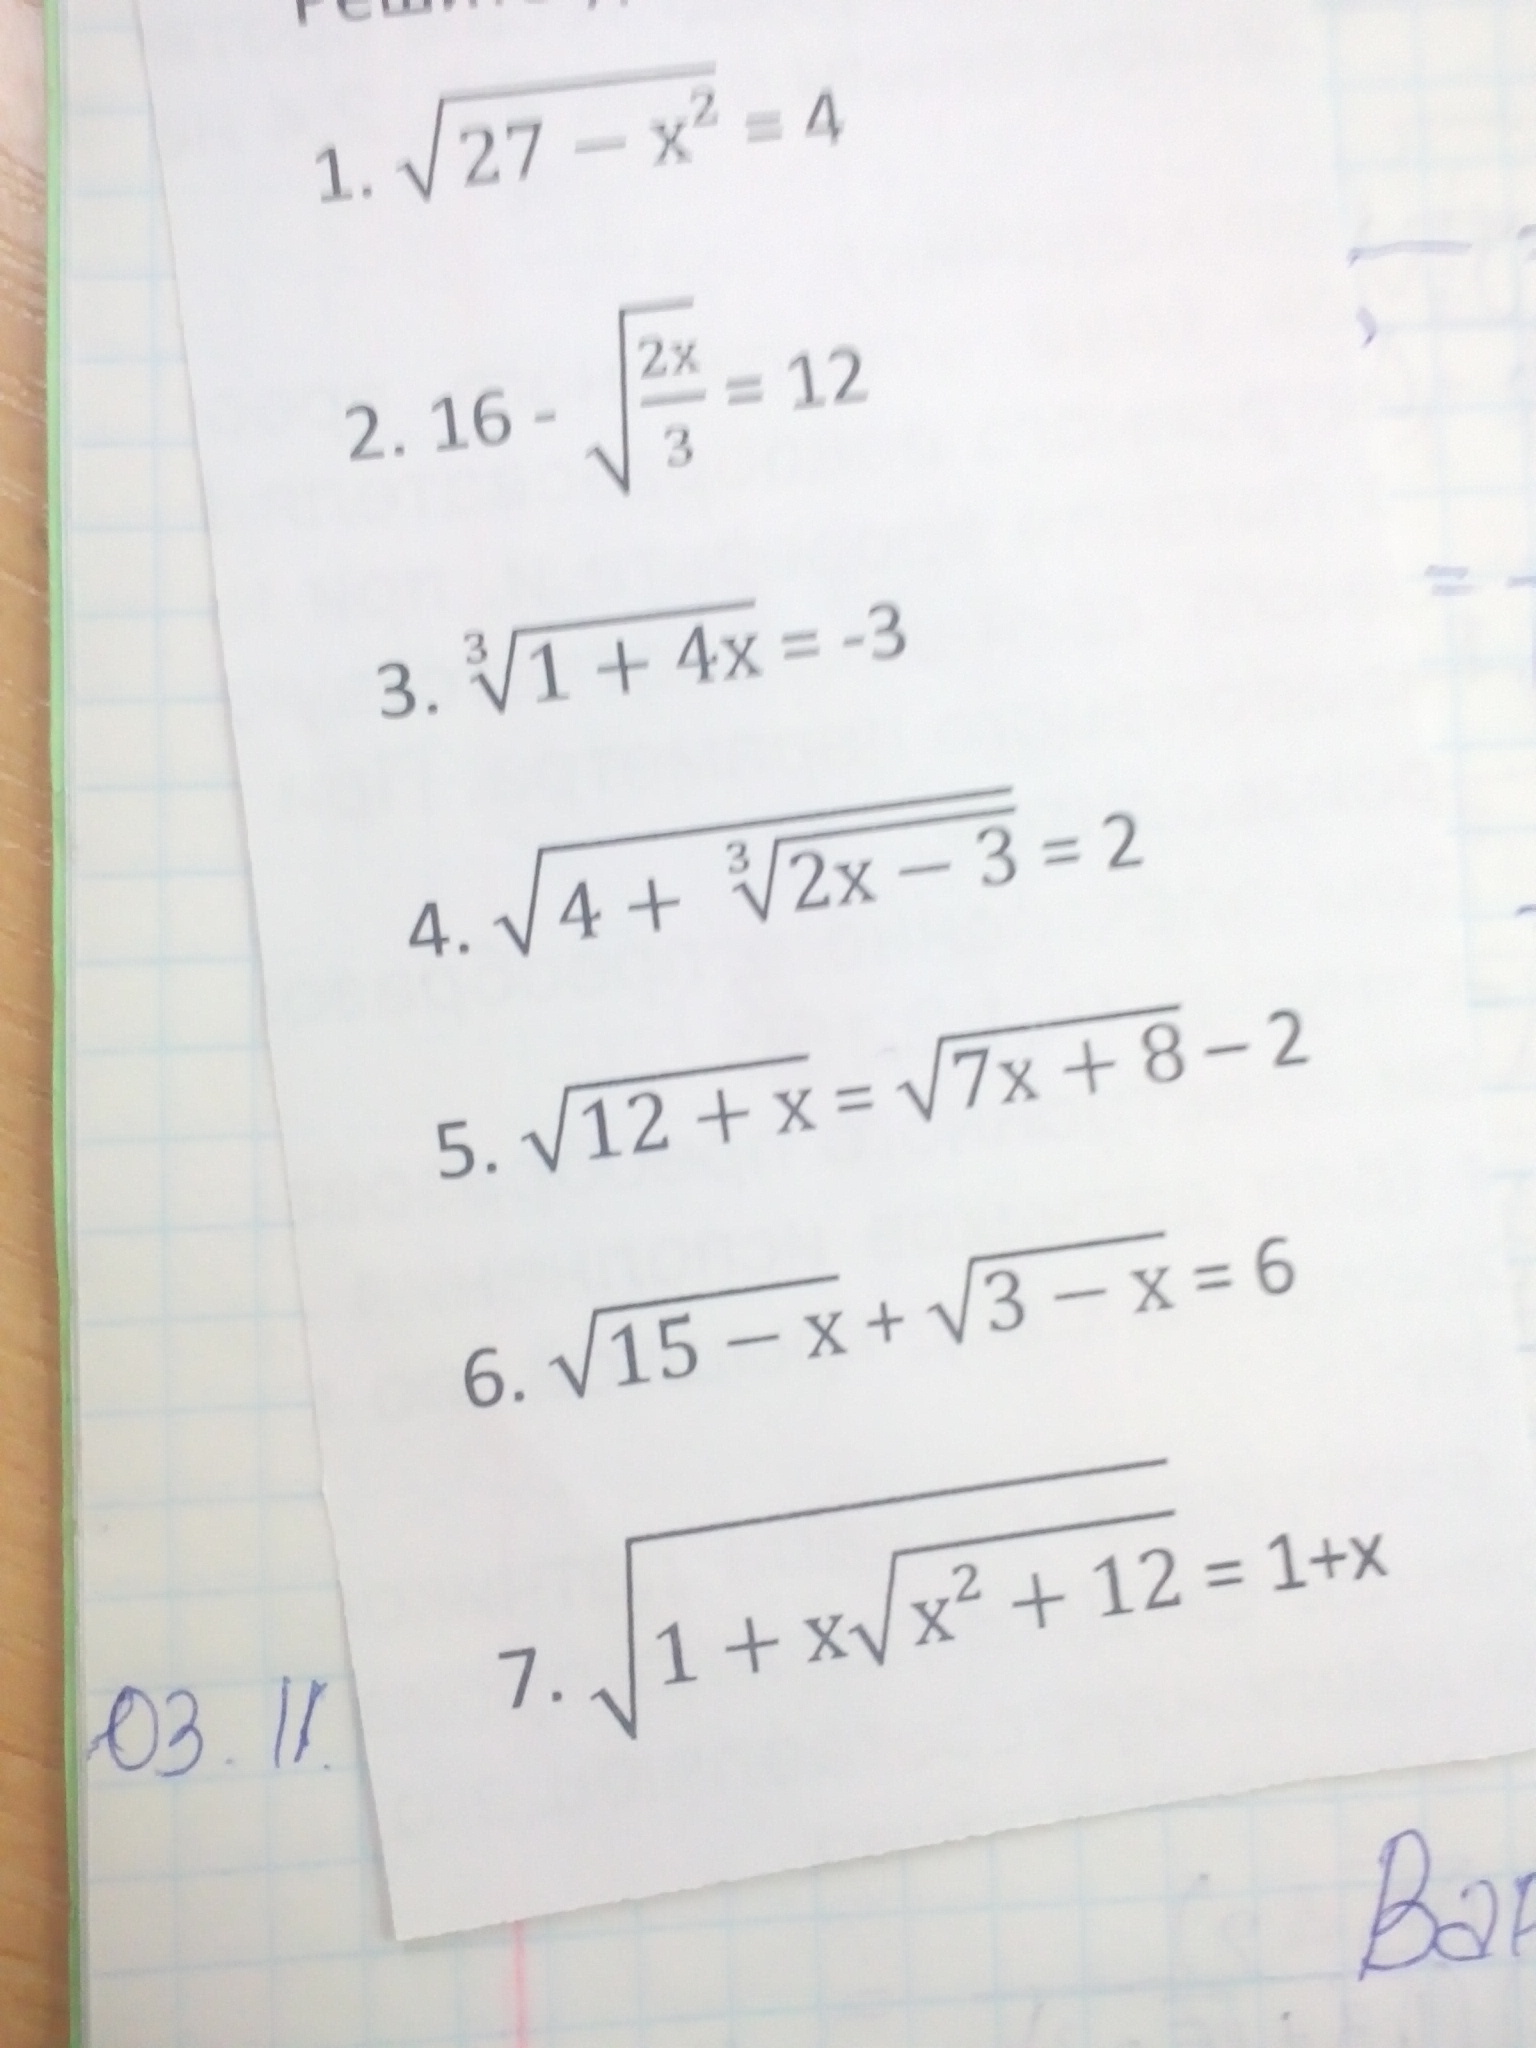 1. √(27 − x²) = 4
2. 16 - √(2x/3) = 12
3. ∛(1 + 4x) = -3
4. √(4 + ∛(2x − 3)) = 2
5. √(12 + x) = √(7x + 8) − 2
6. √(15 − x) + √(3 − x) = 6
7. √(1 + x√(x² + 12)) = 1+x
03. 11.